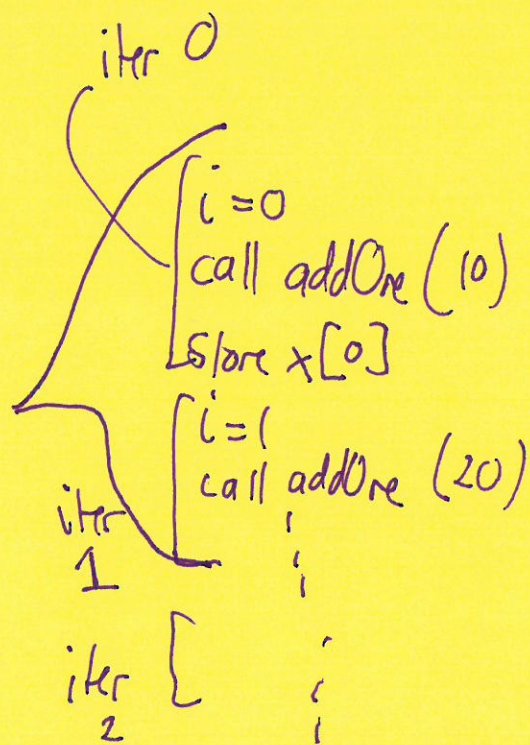 iter 0
i = 0
call addOne (10)
Store x[0]
i = 1
call addOne (20)
iter
1
iter
2